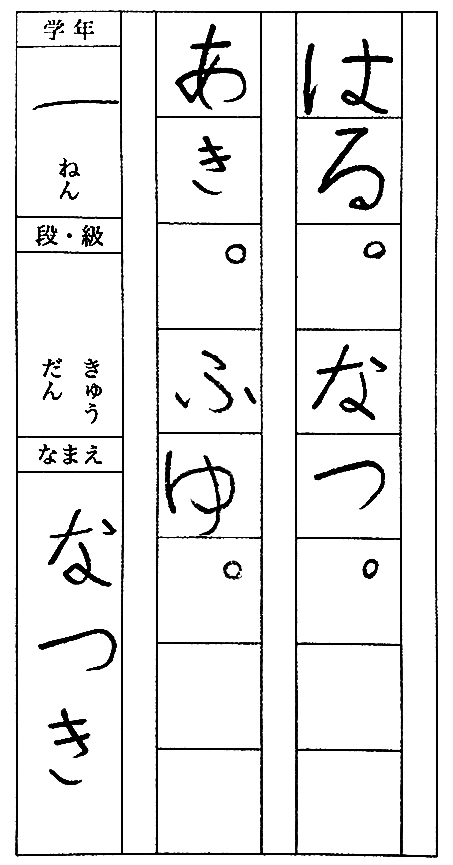 はる。なつ。
あき。ふゆ。
学年
一ねん
段・級
きゅう
だん
なまえ
なつき